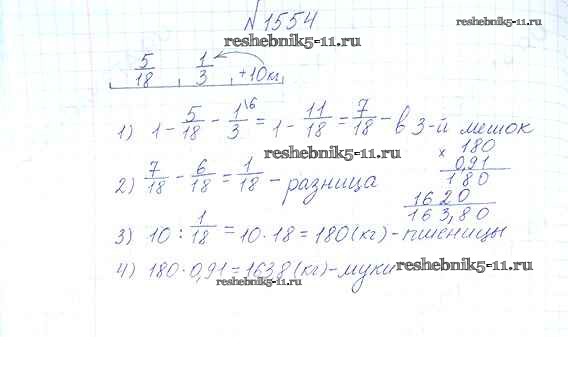 №1554
reshebnik5-11.ru
reshebnik5-11.ru
5/18 1/3 +10кг
1) 1 - 5/18 - 1/3 \6 = 1 - 11/18 = 7/18 - в 3-й мешок
2) 7/18 - 6/18 = 1/18 - разница
reshebnik5-11.ru
× 180
0,91
180
1620
163,80
3) 10 : 1/18 = 10·18 = 180 (кг) - пшеницы
4) 180·0,91 = 163,8 (кг) - муки
reshebnik5-11.ru
reshebnik5-11.ru